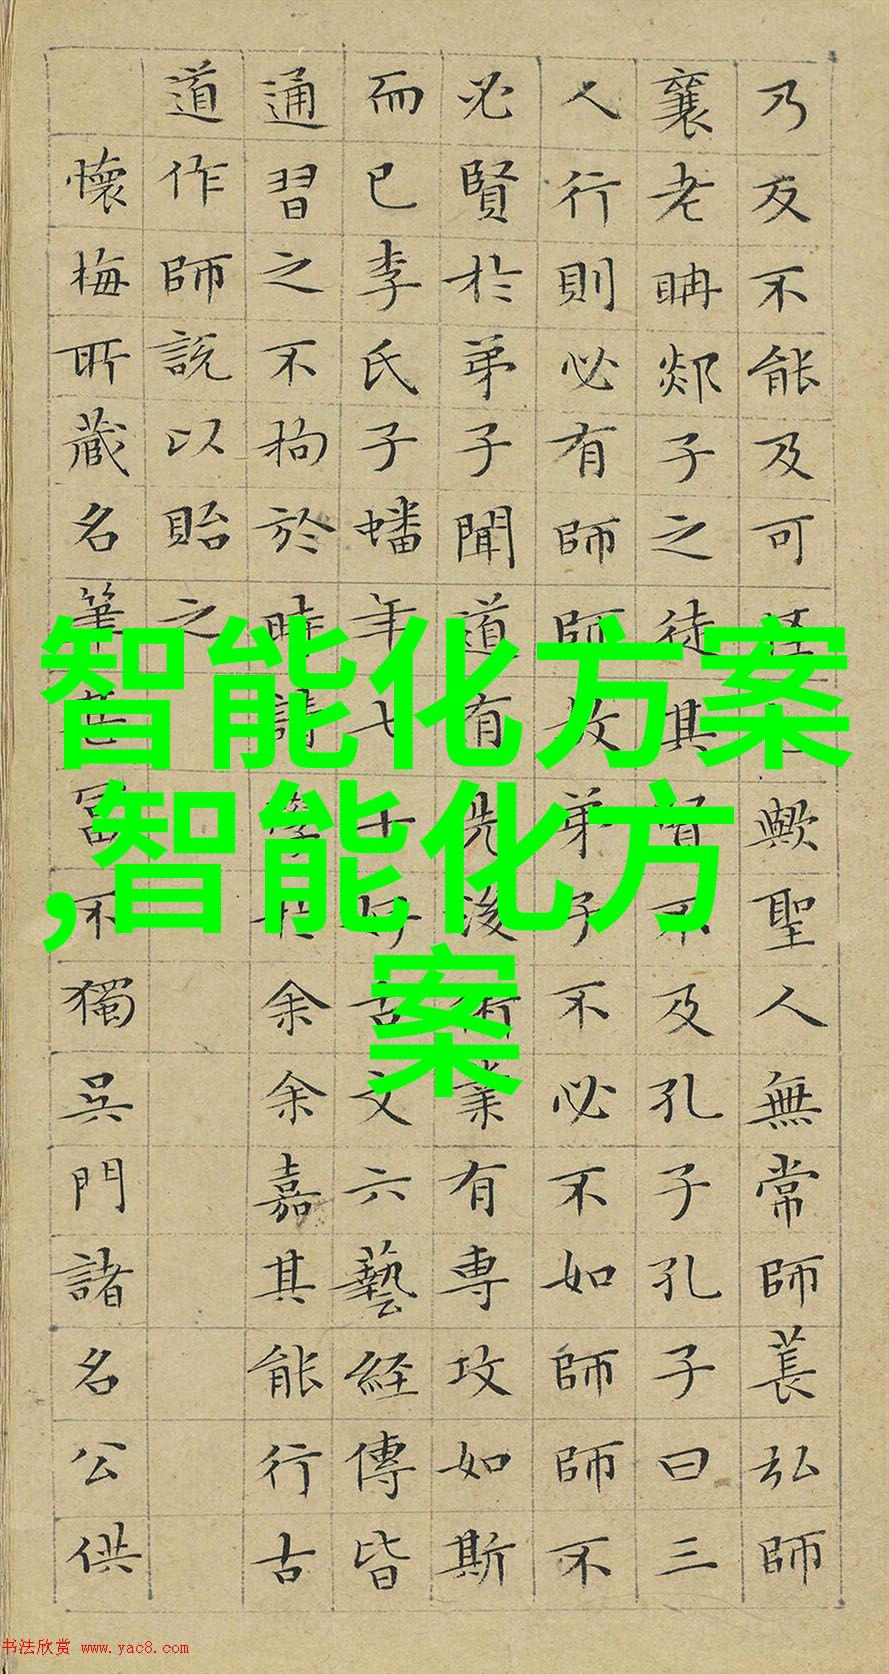 乃反不能及可歟聖人無常師萇弘師
襄老聃郯子之徒其賢不及孔子孔子曰三
人行則必有師師故弟子不必不如師師不
必賢於弟子聞道有先後術業有專攻如斯
而已李氏子蟠年七十好古文六藝経傳皆
通習之不拘於時請學於余余嘉其能行古
道作師說以貽之
懷梅所藏名筆富不獨吳門諸名公供
智能化方案
,智能化方
案
书法欣赏 www.yac8.com